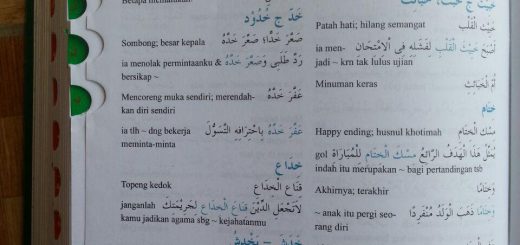 خَبُثَ خَبَائِث
Patah hati; hilang semangat خَبِيْثُ الْقَلْبِ
ia men- أَصْبَحَ خَبِيْثَ الْقَلْبِ لِفَشَلِهِ فِي الْاِمْتِحَانِ
jadi ~ krn tak lulus ujian
Minuman keras أُمُّ الْخَبَائِثِ
خِتَام
Happy ending; husnul khotimah مِسْكُ الْخِتَامِ
gol يُمَثِّلُ هَذَا الْهَدَفُ الرَّائِعُ مِسْكَ الْخِتَامِ لِلْمُبَارَاةِ
indah itu merupakan ~ bagi pertandingan tsb
Akhirnya; terakhir وَخِتَامًا
~ anak itu pergi seo- وَخِتَامًا ذَهَبَ الْوَلَدُ مُنْفَرِدًا
rang diri
خَدّ ج خُدُوْد
Sombong; besar kepala صَعَّرَ خَدًّا؛ صَعَّرَ خَدَّهُ
ia menolak permintaanku & رَدَّ طَلَبِى وَصَعَّرَ خَدَّهُ
bersikap ~
Mencoreng muka sendiri; merendah- عَفَّرَ خَدَّهُ
kan diri sendri
ia tlh ~ dng bekerja عَفَّرَ خَدَّهُ بِاحْتِرَافِهِ التَّسَوُّلَ
meminta-minta
خِدَاع
Topeng kedok قِنَاعُ الْخِدَاعِ
janganlah لَاتَجْعَلِ الدِّيْنَ قِنَاعَ الْخِدَاعِ لِجَرِيْمَتِكَ
kamu jadikan agama sbg ~ kejahatanmu
خَدَشَ – يَخْدِشُ